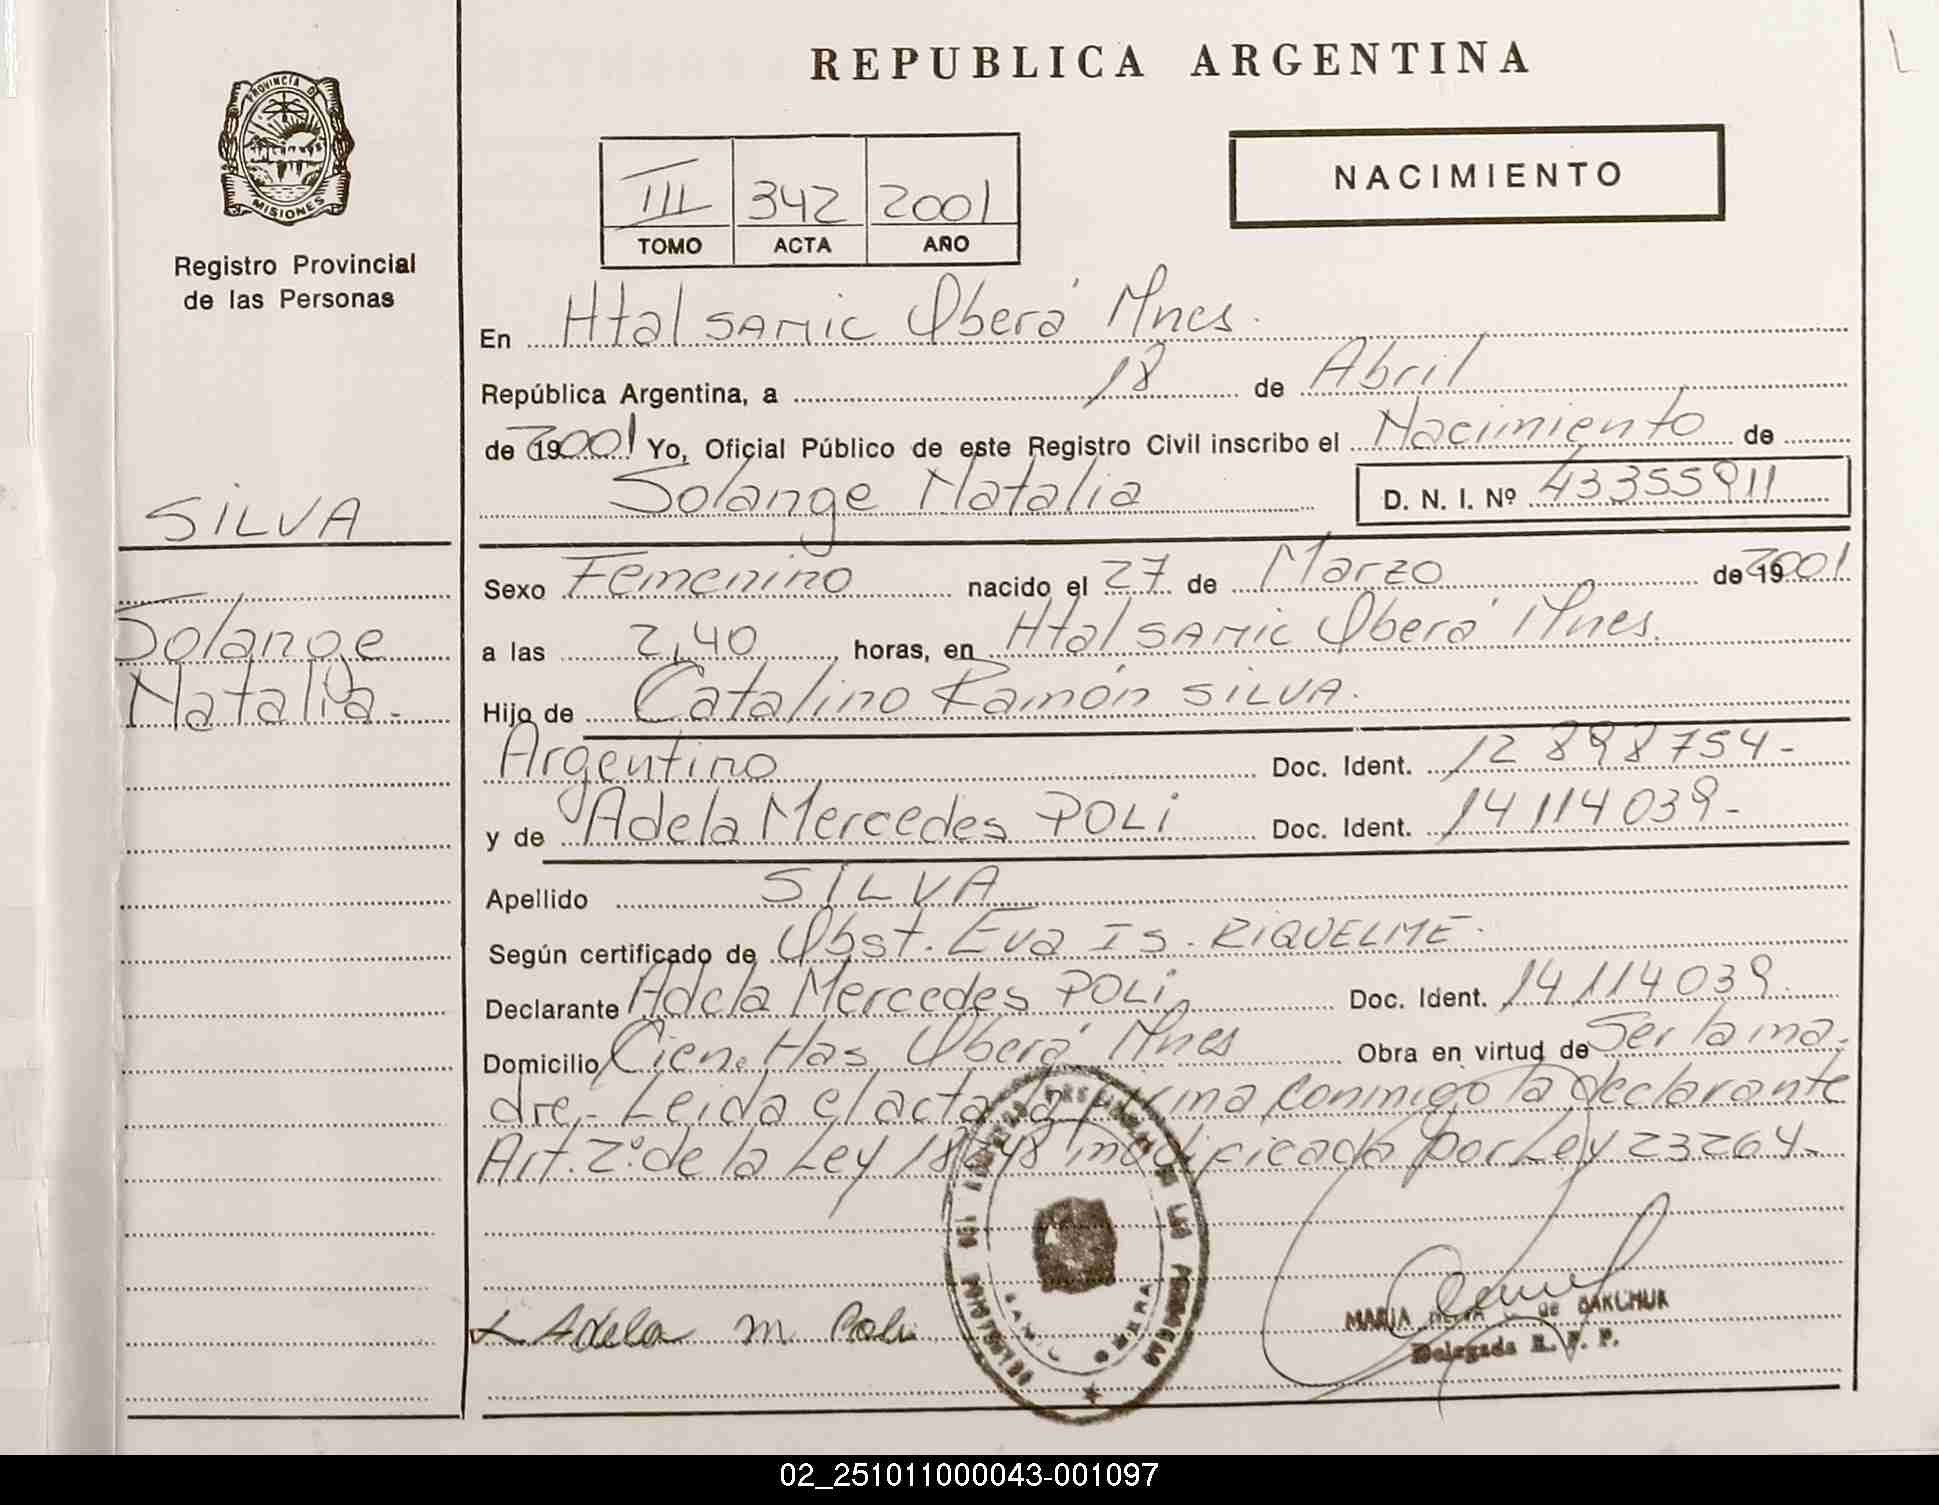 REPUBLICA ARGENTINA
PROVINCIA DE
MISIONES
Registro Provincial
de las Personas
III 342 2001
TOMO ACTA AÑO
NACIMIENTO
En Htal SAMIC Oberá Mnes.
República Argentina, a 18 de Abril
de 2001 Yo, Oficial Público de este Registro Civil inscribo el Nacimiento de
Solange Natalia D. N. I. Nº 43355911
SILVA
Solange
Natalia.
Sexo Femenino nacido el 27 de Marzo de 2001
a las 2,40 horas, en Htal SAMIC Oberá Mnes.
Hijo de Catalino Ramón SILVA.
Argentino Doc. Ident. 12 898754-
y de Adela Mercedes POLI Doc. Ident. 14114039-
Apellido SILVA
Según certificado de Obst. Eva Is. RIQUELME.
Declarante Adela Mercedes POLI, Doc. Ident. 14114039.
Domicilio Cien Has Oberá Mnes Obra en virtud de Ser la ma-
dre.- Leida el acta la firma conmigo la declarante
Art. 2º de la Ley 18248 modificada por Ley 23264-
Adela M Poli
MARIA de BAKCHUK
Delegada R. P. P.
02_251011000043-001097